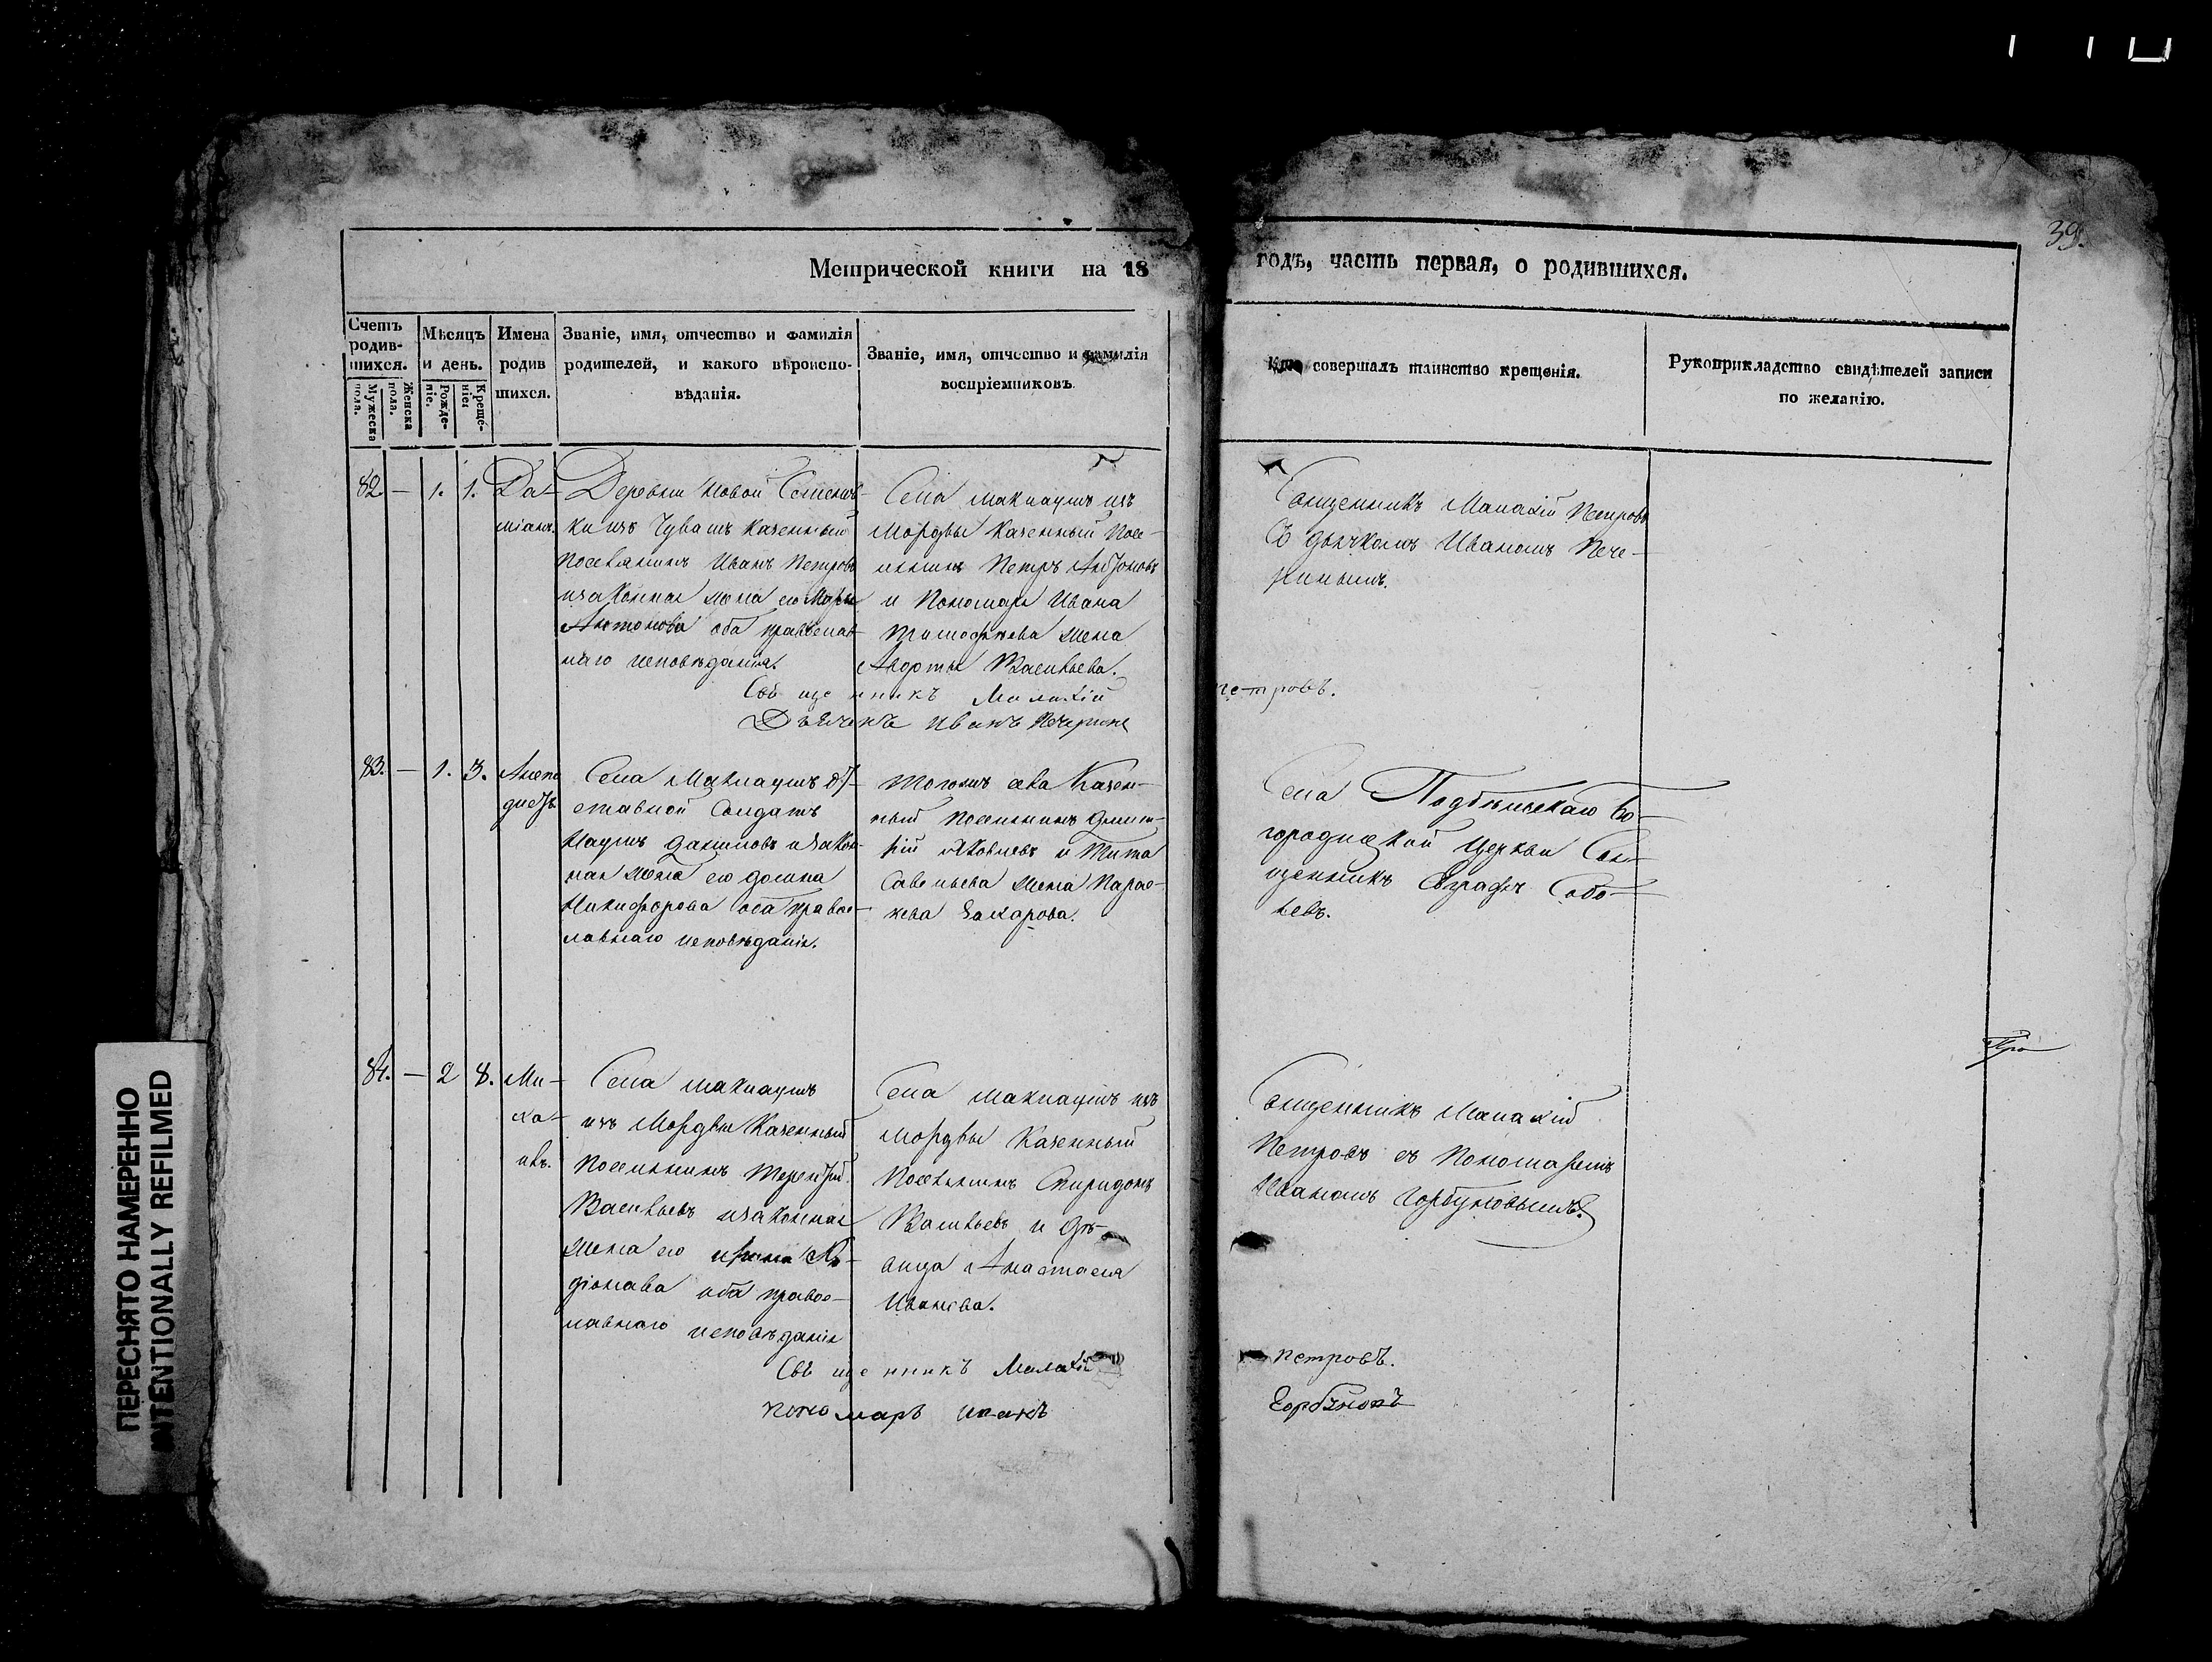 39.
Метрической книги на 18
годъ, часть первая, о родившихся.
Счетъ родив-шихся.
Мужеска пола.
Женска пола.
Мѣсяцъ и день.
Рожде-ніе.
Креще-ніе.
Имена родив шихся.
Званіе, имя, отчество и фамилія
родителей, и какого вѣроиспо-
вѣданія.
Званіе, имя, отчество и фамилія
воспріемниковъ.
Кто совершалъ таинство крещенія.
Рукоприкладство свидѣтелей записи
по желанію.
82 — 1. 1.
Да-
міанъ.
Деревни Новой
ки изъ Чувашъ Казенный
Поселянинъ Иванъ Петровъ
изаконная жена его Марья
Антонова оба православ-
наго исповѣданія.
Села Маклаушъ изъ
Мордвы Казенный Посе-
лянинъ Петръ Антоновъ
и Пономаря Ивана
Тимофѣева жена
Авдотья Васильева.
Священникъ Малахій Петровъ
Съ дьячкомъ Иваномъ Пече-
ринымъ.
Священникъ Малахій
петровъ.
Дьячекъ Иванъ Печеринъ
83. — 1. 3.
Села Маклаушъ от-
ставной Солдатъ
Наумъ Даниловъ изакон-
ная жена его Домна
Никифорова оба право-
лавнаго исповѣданія.
Тогожъ села Казен-
ный Поселянинъ Дмит-
рій Яковлевъ и Тита
Савельева жена Парас-
кева Захарова.
Села Подбѣльскаго Бо-
городицкой Церкви Свя-
щенникъ Евграфъ
84. — 2 8.
Ми-
ха-
илъ.
Села Маклаушъ
изъ Мордвы Казенный
Поселянинъ Терентій
Васильевъ изаконная
жена его Ирина Ро-
діонава оба правос-
лавнаго исповѣданія
Села Маклаушъ изъ
Мордвы Казенный
Поселянинъ Спиридонъ
Васильевъ и Дѣ-
вица Анастасія
Иванова.
Священникъ Малахій
Петровъ съ Пономаремъ
Иваномъ Горбуновымъ.
Священникъ Малахій
петровъ.
пономарь Иванъ
Горбуновъ
ПЕРЕСНЯТО НАМЕРЕННО
INTENTIONALLY REFILMED